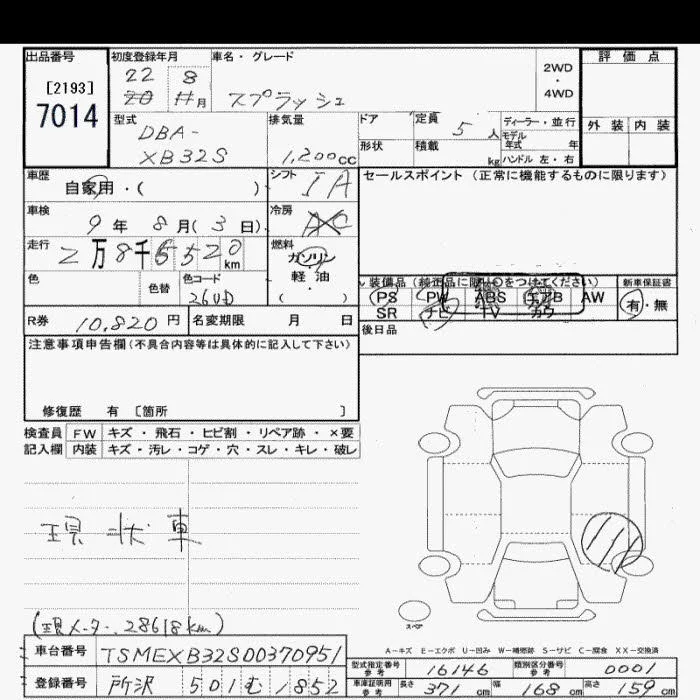 出品番号 初度登録年月 車名・グレード 評価点
[2193] 22 8 2WD
7014 20 11 月 スプラッシュ ・ 4WD
型式 排気量 ドア 定員 5 人 ディーラー・並行 外装 内装
DBA- モデル年式 年
XB32S 1,200cc 形状 積載 kg ハンドル 左・右
車歴 自家用・( ) シフト IA セールスポイント (正常に機能するものに限ります)
車検 9年 8月( 3日) 冷房 AC
走行 2万8千6520 km 燃料 ガソリン
軽油
色 色替 色コード ( ) 装備品 (純正品に限り○をつけてください) 新車保証書
26UD PS PW ABS エアB AW 有・無
R券 10,820円 名変期限 月 日 SR ナビ TV カワ
注意事項申告欄(不具合内容等は具体的に記入して下さい) 後日品
修復歴 有 [箇所 ]
検査員 FW キズ・飛石・ヒビ割・リペア跡・×要
記入欄 内装 キズ・汚レ・コゲ・穴・スレ・キレ・破レ
現状車
スペア
(現メーター、28618km)
A-キズ E-エクボ U-凹み W-補修跡 S-サビ C-腐食 XX-交換済
車台番号 TSMEXB32S00370951 型式指定番号 参考 16146 類別区分番号 参考 0001
登録番号 所沢 501む1852 車庫証明用 参考 長さ 371 cm 幅 168 cm 高さ 159 cm